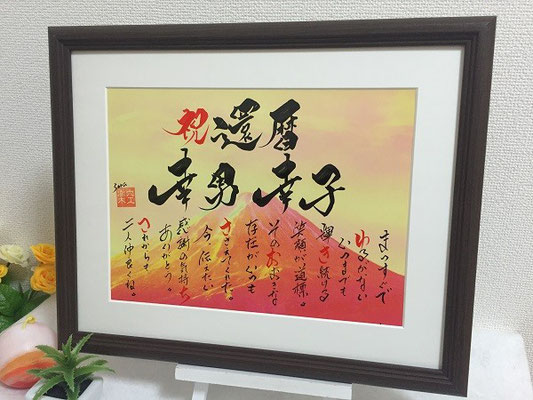 祝還暦
幸男 幸子
まっすぐで
ゆるがない
いつまでも
輝き続ける
笑顔が道標。
そのおおきな
存在がいつも
ささえてくれた。
今、伝えたい
感謝の気持ち
ありがとう。
これからも
二人仲良くね。